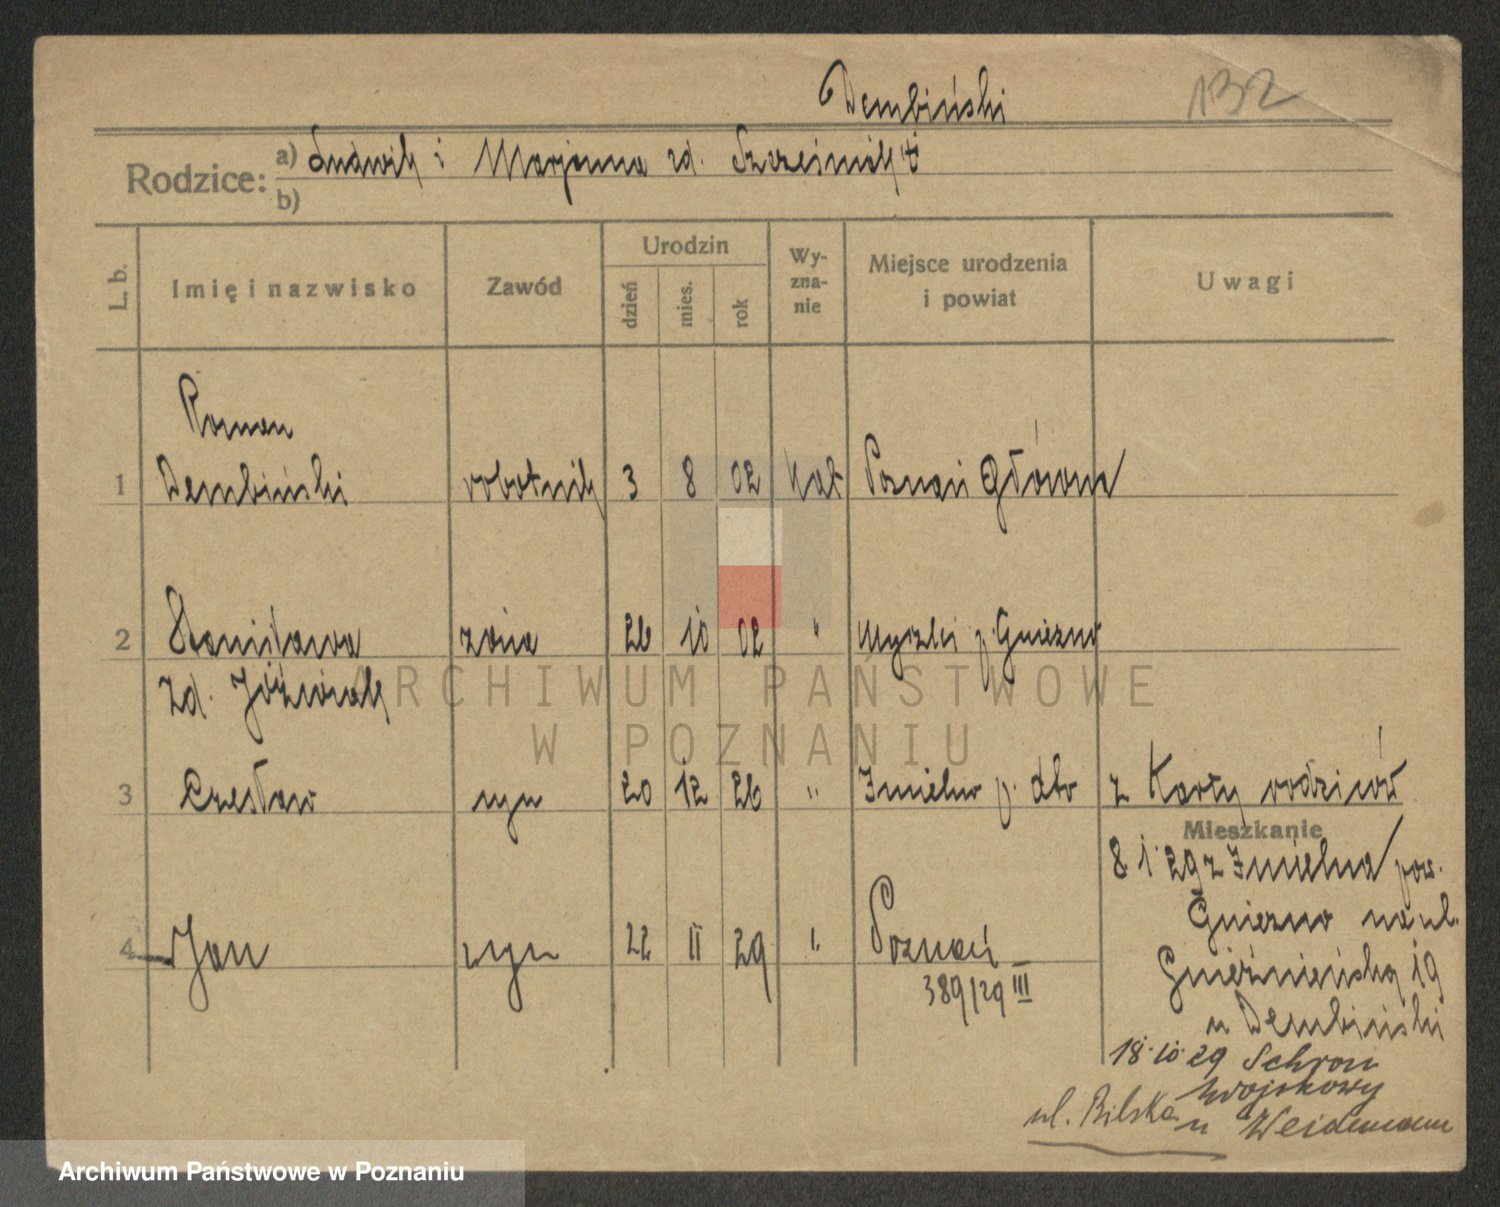 Dembiński 132
Rodzice: a) Ludwik i Marjanna zd.
b)
L. b. Imię i nazwisko Zawód Urodzin dzień mies. rok Wyznanie Miejsce urodzenia i powiat Uwagi
Roman
1 Dembiński robotnik 3 8 02 kat Poznań Główna
2 Stanisława żona 26 10 02 " Myszki p. Gniezno
zd. Jóźwiak
3 Czesław syn 20 12 26 " Imielno p. dto z Karty rodziców
Mieszkanie
8 1 29 z Imielna pow.
Gniezno na ul.
4 Jan syn 22 II 29 " Poznań
Gnieźnieńska 19
389/29 III
u Dembiński
18.10.29 Schron
Wojskowy
ul. Bilska
u Weidemann
ARCHIWUM PAŃSTWOWE
W POZNANIU
Archiwum Państwowe w Poznaniu